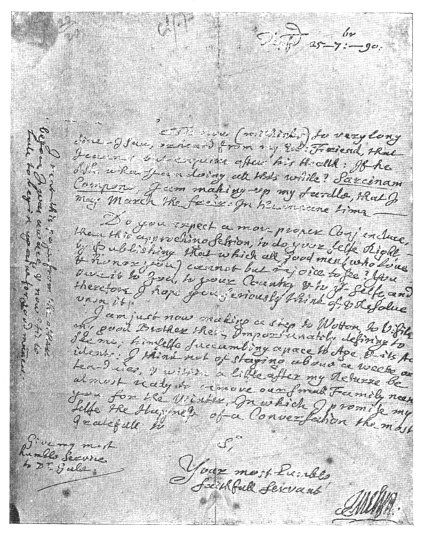 Depfd
br
25-7:-90.
'Tis now (methinks) so very long
since I saw, or heard from my Ex: Friend, that
I cannot but enquire after his Health: If he
Ask what I am doing all this while? Sarcinam
Compono, I am making-up my Fardle, that I
may March the freer: In the meane time —
Do you expect a more proper Conjuncture
than this approching Session, to do your selfe Right,
by Publishing that which all good men (who love
& honor you) cannot but rejoice to see? You
owe it to God, to your Country & to your selfe, and
therefore I hope you seriously think of & Resolve
upon it:
I am just now making a step to Wotton, to Visite
my good Brother there, Importunately desiring to
see me, himselfe succumbing apace to Age & its Ac
cidents: I think not of staying above a weeke or
ten daies, & within a little after my Returne be
almost ready to remove our small Family neere
you for the Winter, In which I promise my
selfe the Happinesse of a Conversation the most
Gratefull to
Sr,
Your most humble
faithfull Servant
JEvelyn:
Give my most
humble Service
to Dr. Gale.
I send this